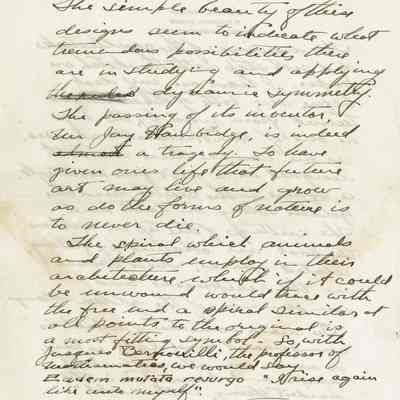 The simple beauty of these
designs seem to indicate what
tremendous possibilities there
are in studying and applying
dynamic symmetry.
The passing of its inventor,
Mr Jay Hambidge, is indeed
almost a tragedy. To have
given ones life that future
art may live and grow
as do the forms of nature is
to never die.
The spiral which animals
and plants employ in their
architecture which if it could
be unwound would leave with
the free end a spiral similar at
all points to the original is
a most fitting symbol. So, with
Jacques Bernouilli, the professor of
mathematics, we would say
Eadem mutata resurgo "I rise again
like unto myself".